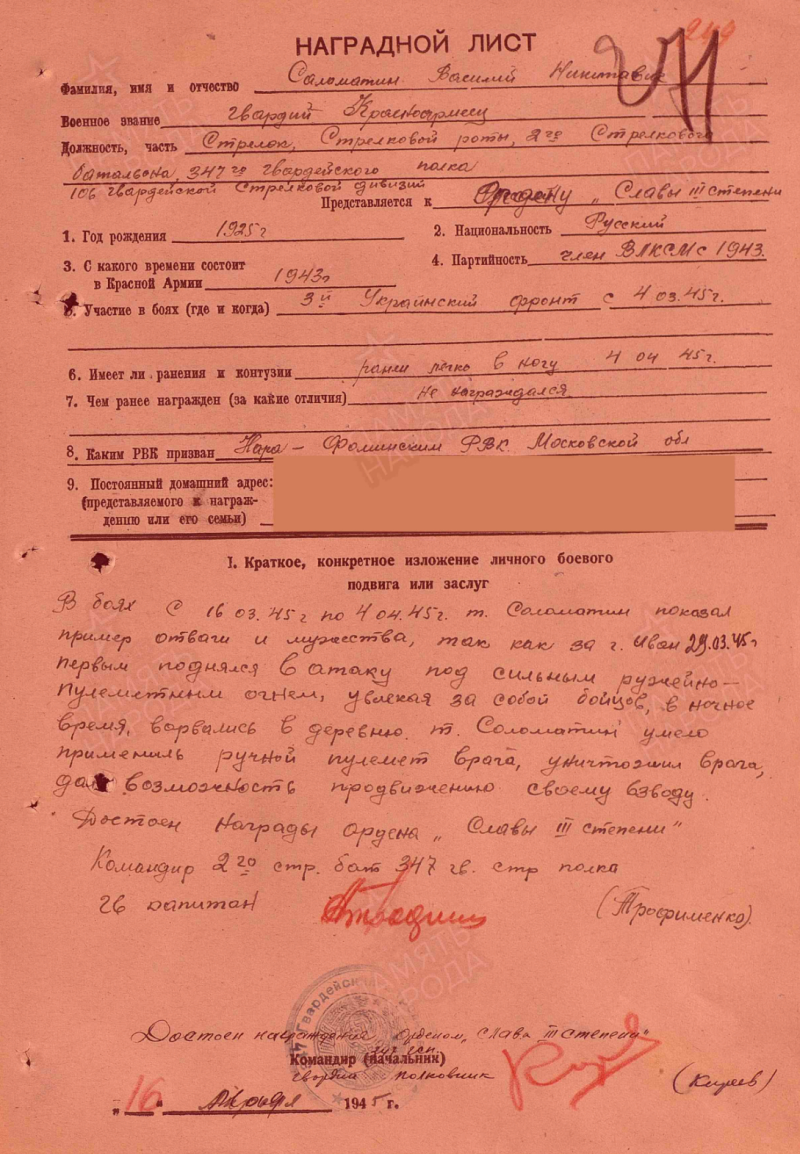 НАГРАДНОЙ ЛИСТ
Фамилия, имя и отчество Саломатин Василий Никитавич
Военное звание Гвардий Красноармеец
Должность, часть Стрелок, Стрелковой роты, 2го Стрелкового
батальона, 347го гвардейского полка
106 гвардейской Стрелковой дивизий
Представляется к Ордену „Славы III степени
1. Год рождения 1925г
2. Национальность Русский
3. С какого времени состоит
в Красной Армии 1943г
4. Партийность член ВЛКСМ с 1943.
5. Участие в боях (где и когда) 3й Украинский фронт с 4 03.45г.
6. Имеет ли ранения и контузии ранен легко в ногу 4 04 45г.
7. Чем ранее награжден (за какие отличия) Не награждался
8. Каким РВК призван Нара-Фоминским РВК Московской обл
9. Постоянный домашний адрес:
(представляемого к награж-
дению или его семьи)
I. Краткое, конкретное изложение личного боевого
подвига или заслуг
В боях с 16 03.45г по 4 04.45г. т. Соломатин показал
пример отваги и мужества, так как за г. Иван 29.03.45г
первым поднялся в атаку под сильным ружейно-
пулеметным огнем, увлекая за собой бойцов, в ночное
время, ворвались в деревню. т. Соломатин умело
применил ручной пулемет врага, уничтожил врага,
дав возможность продвижению своему взводу.
Достоен Награды ордена „Славы III степени"
Командир 2го стр. бат 347 гв. стр полка
гв капитан (Трофименко).
Достоен награждения орденом „Слава III степени"
Командир (начальник)
гвардии полковник (Киреев)
„16" Апреля 1945 г.
ПАМЯТЬ
НАРОДА